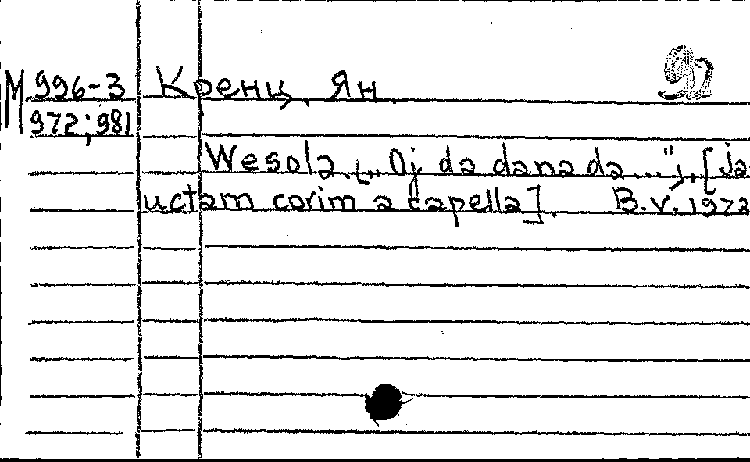 М 996-3 Кренц, Ян. 92
972; 981
Wesoła. („Oj da dana da..."). [Ja-
uctam corim a capella]. B.v. 1973